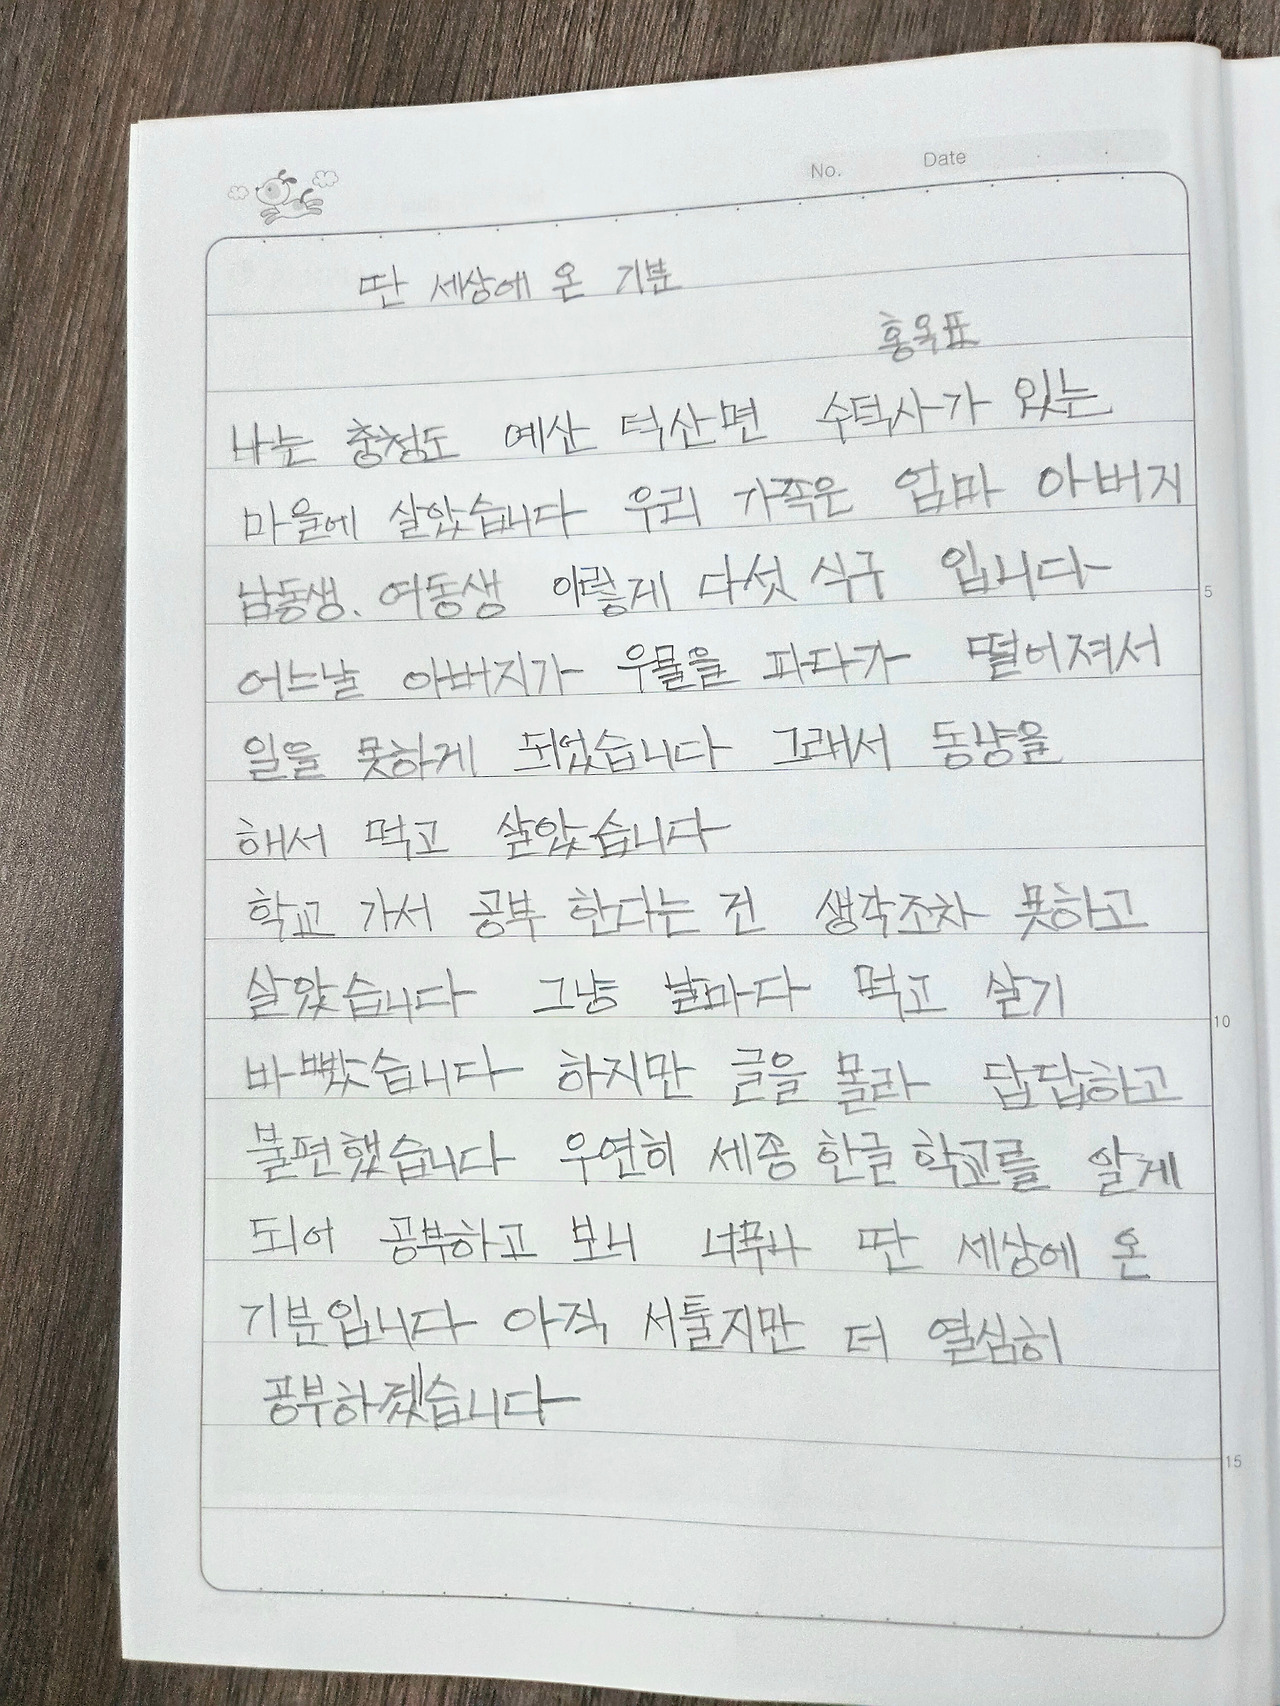 No. Date
딴 세상에 온 기분
홍옥표
나는 충청도 예산 덕산면 수덕사가 있는
마을에 살았습니다 우리 가족은 엄마 아버지
남동생. 여동생 이렇게 다섯 식구 입니다
어느날 아버지가 우물을 파다가 떨어져서
일을 못하게 되었습니다 그래서 동냥을
해서 먹고 살았습니다
학교 가서 공부 한다는 건 생각조차 못하고
살았습니다 그냥 날마다 먹고 살기
바빴습니다 하지만 글을 몰라 답답하고
불편했습니다 우연히 세종 한글 학교를 알게
되어 공부하고 보니 너무나 딴 세상에 온
기분입니다 아직 서툴지만 더 열심히
공부하겠습니다
5
10
15